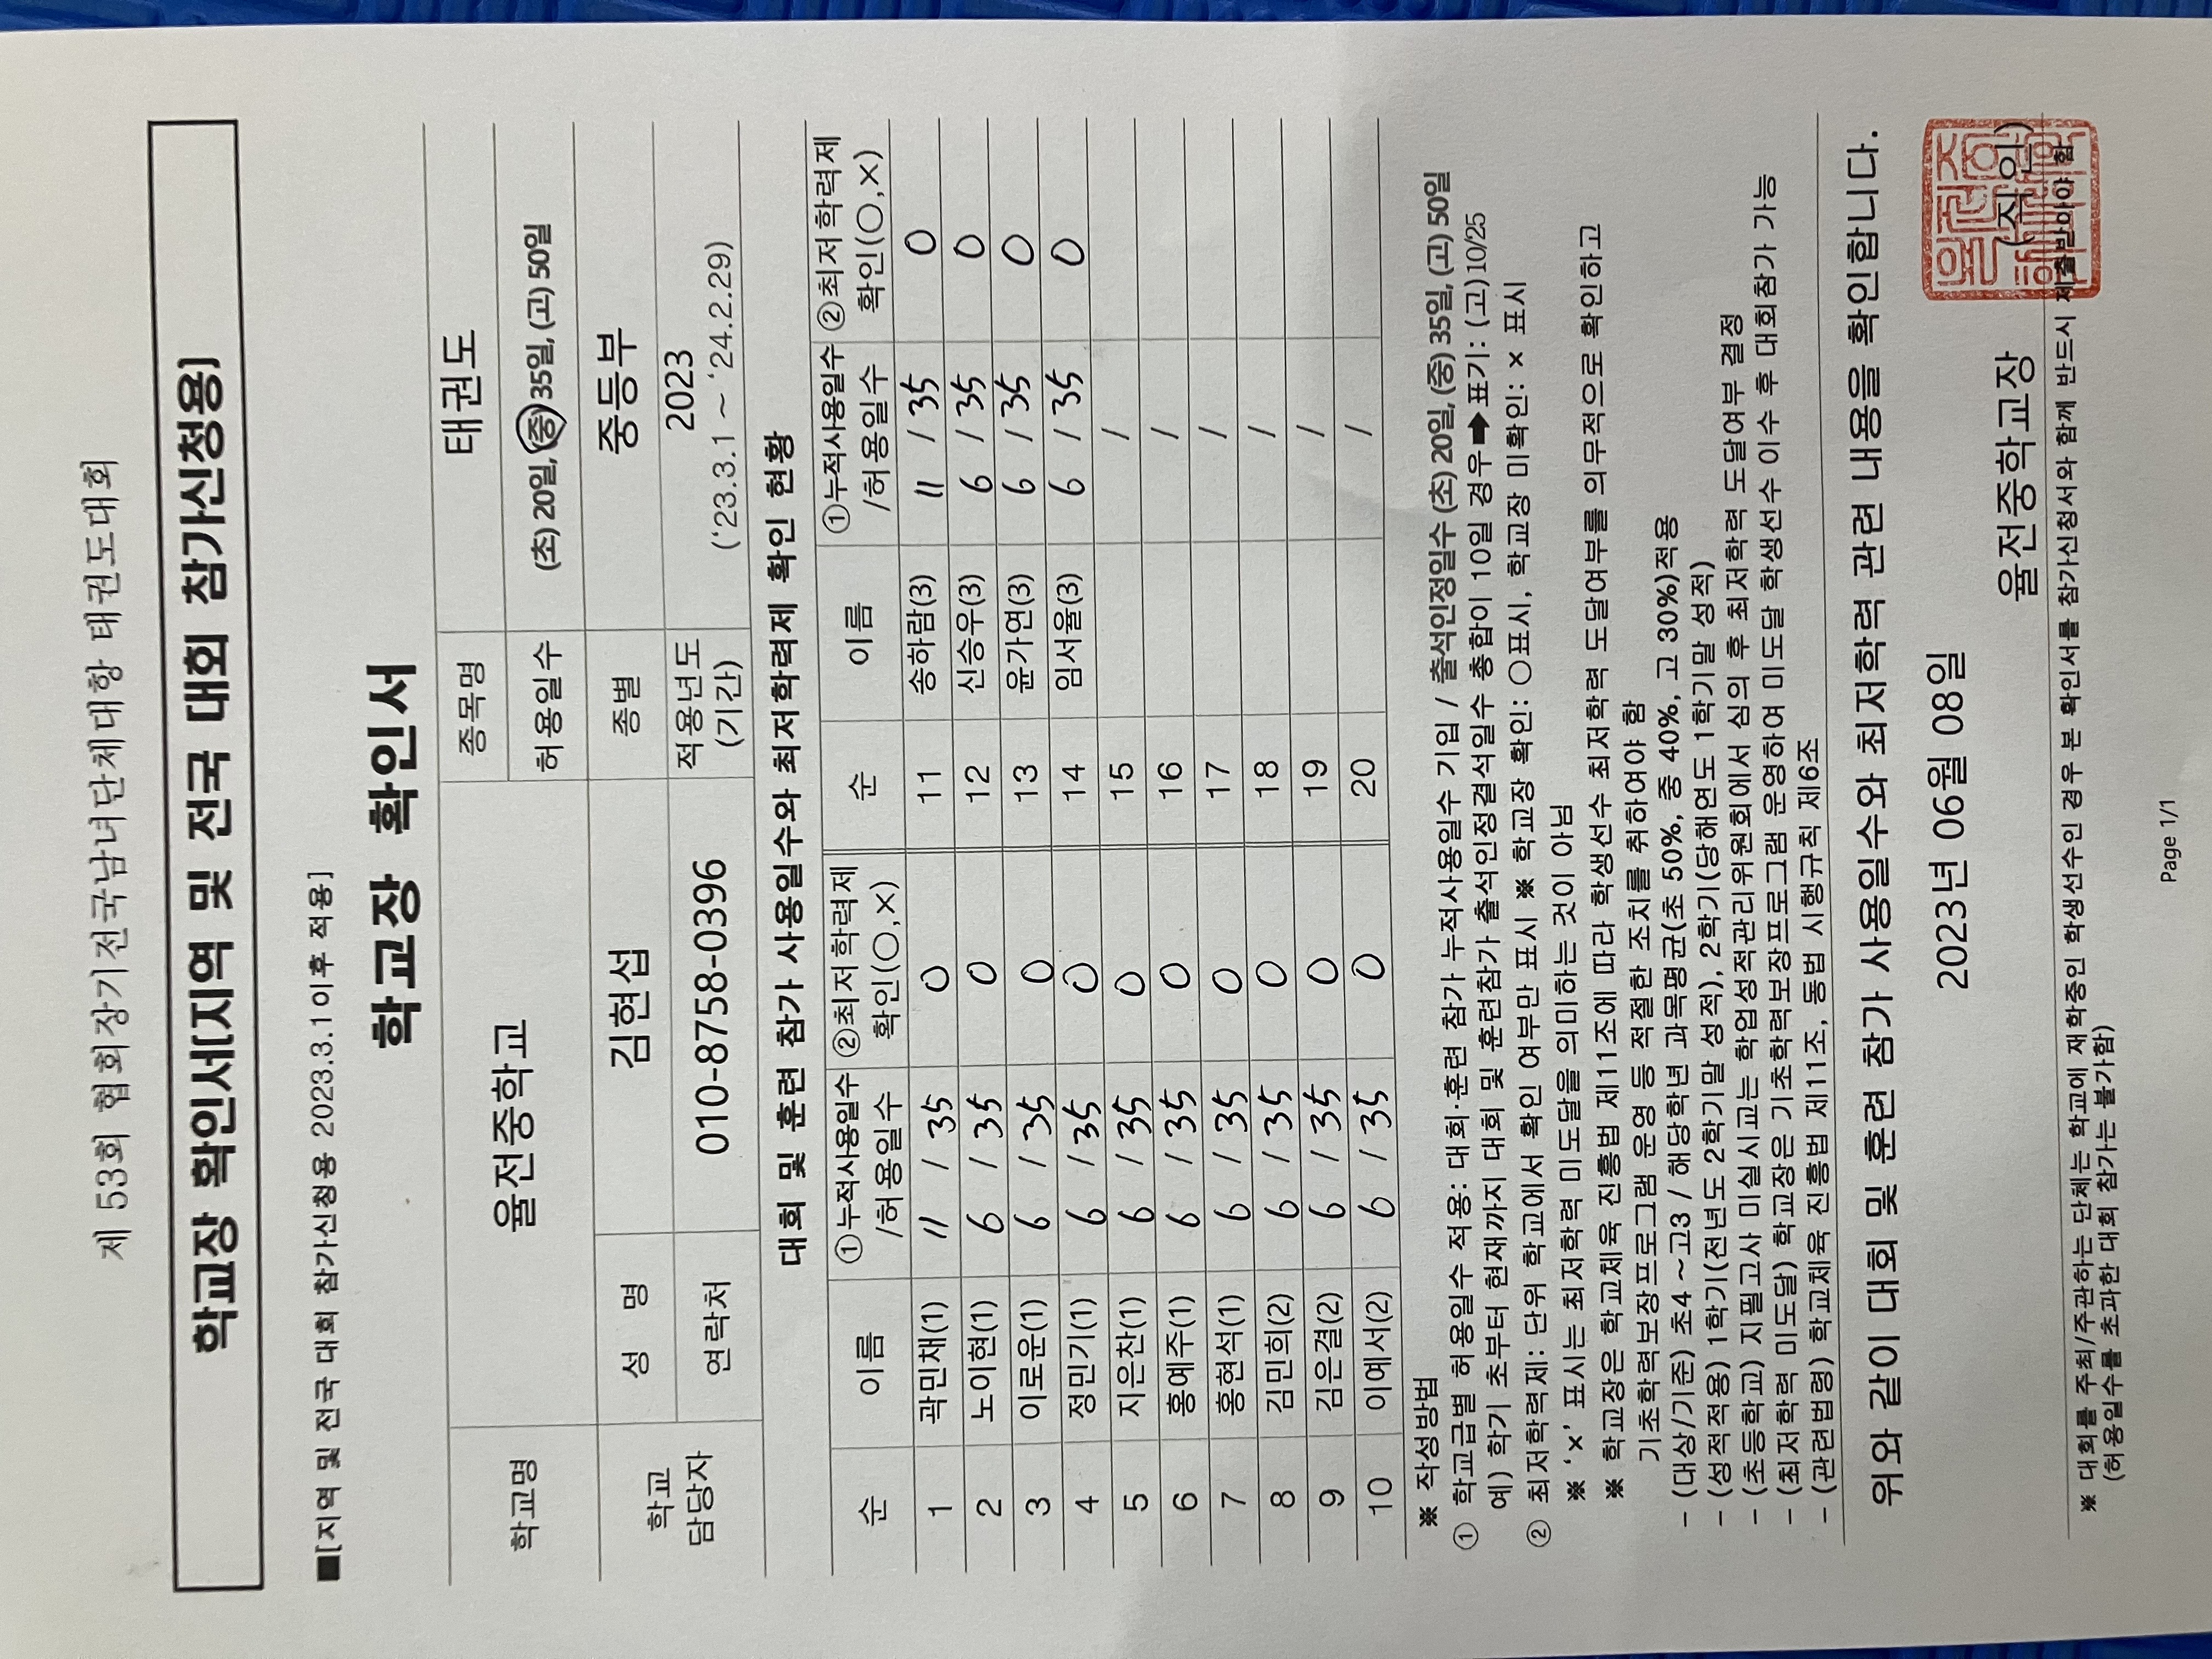 제 53회 협회장기전국남녀단체대항 태권도대회
학교장 확인서[지역 및 전국 대회 참가신청용]
■[지역 및 전국 대회 참가신청용 2023.3.1이후 적용]
학교장 확인서
학교명 율전중학교 종목명 태권도
허용일수 (초) 20일, (중) 35일, (고) 50일
학교 담당자 성 명 김현섭 종별 중등부
연락처 010-8758-0396 적용년도 (기간) 2023 ('23.3.1 ~ '24.2.29)
대회 및 훈련 참가 사용일수와 최저학력제 확인 현황
순 이름 ①누적사용일수 /허용일수 ②최저학력제 확인(○,×) 순 이름 ①누적사용일수 /허용일수 ②최저학력제 확인(○,×)
1 곽민채(1) 11 / 35 O 11 송하람(3) 11 / 35 O
2 노이현(1) 6 / 35 O 12 신승우(3) 6 / 35 O
3 이로운(1) 6 / 35 O 13 윤가연(3) 6 / 35 O
4 정민기(1) 6 / 35 O 14 임서율(3) 6 / 35 O
5 지은찬(1) 6 / 35 O 15 /
6 홍예주(1) 6 / 35 O 16 /
7 홍현석(1) 6 / 35 O 17 /
8 김민희(2) 6 / 35 O 18 /
9 김은결(2) 6 / 35 O 19 /
10 이예서(2) 6 / 35 O 20 /
※ 작성방법
① 학교급별 허용일수 적용: 대회·훈련 참가 누적사용일수 기입 / 출석인정일수 (초) 20일, (중) 35일, (고) 50일
예) 학기 초부터 현재까지 대회 및 훈련참가 출석인정결석일수 총합이 10일 경우 ➡ 표기: (고) 10/25
② 최저학력제: 단위 학교에서 확인 여부만 표시 ※ 학교장 확인: ○표시, 학교장 미확인: × 표시
※ '×' 표시는 최저학력 미도달을 의미하는 것이 아님
※ 학교장은 학교체육 진흥법 제11조에 따라 학생선수 최저학력 도달여부를 의무적으로 확인하고
기초학력보장프로그램 운영 등 적절한 조치를 취하여야 함
- (대상/기준) 초4 ~ 고3 / 해당학년 과목평균(초 50%, 중 40%, 고 30%)적용
- (성적적용) 1학기(전년도 2학기말 성적), 2학기(당해연도 1학기말 성적)
- (초등학교) 지필고사 미실시교는 학업성적관리위원회에서 심의 후 최저학력 도달여부 결정
- (최저학력 미도달) 학교장은 기초학력보장프로그램 운영하여 미도달 학생선수 이수 후 대회참가 가능
- (관련법령) 학교체육 진흥법 제11조, 동법 시행규칙 제6조
위와 같이 대회 및 훈련 참가 사용일수와 최저학력 관련 내용을 확인합니다.
2023년 06월 08일
율전중학교장 (직인)
※ 대회를 주최/주관하는 단체는 학교에 재학중인 학생선수인 경우 본 확인서를 참가신청서와 함께 반드시 제출받아야 함
(허용일수를 초과한 대회 참가는 불가함)
Page 1/1